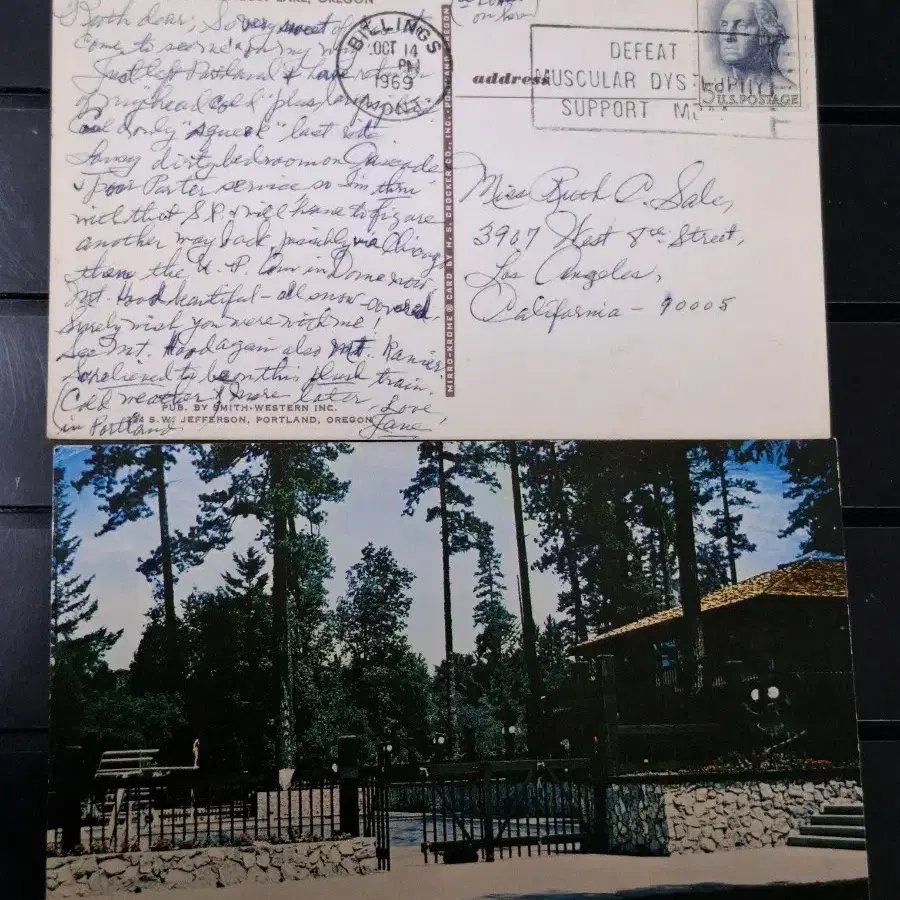 LAKE, OREGON
Ruth dear; So very sweet of
come to see me on my
Just left Portland & have
of my "head cold" plus laryngitis
Could only "squeek" last
Lousy dirty bedroom on Cascade
Poor Porter service so I'm thru
with that S.P. & will have to figure
another way back, possibly via Chicago
then the U.P. Am in Dome now,
Mt. Hood beautiful - all snow-covered.
Surely wish you were with me!
See Mt. Hood again also Mt. Ranier
So relieved to be on this plush train.
(Cold weather & more later, Love
in Portland) Jane
PUB. BY SMITH-WESTERN INC.
S.W. JEFFERSON, PORTLAND, OREGON
MIRRO-KROME ® CARD BY H. S. CROCKER CO., INC.
on here)
BILLINGS
OCT 14
PM
1969
DEFEAT
MUSCULAR DYST
SUPPORT
5¢
U.S. POSTAGE
address
Miss Ruth A. Sale,
3907 West 8th Street,
Los Angeles,
California - 90005